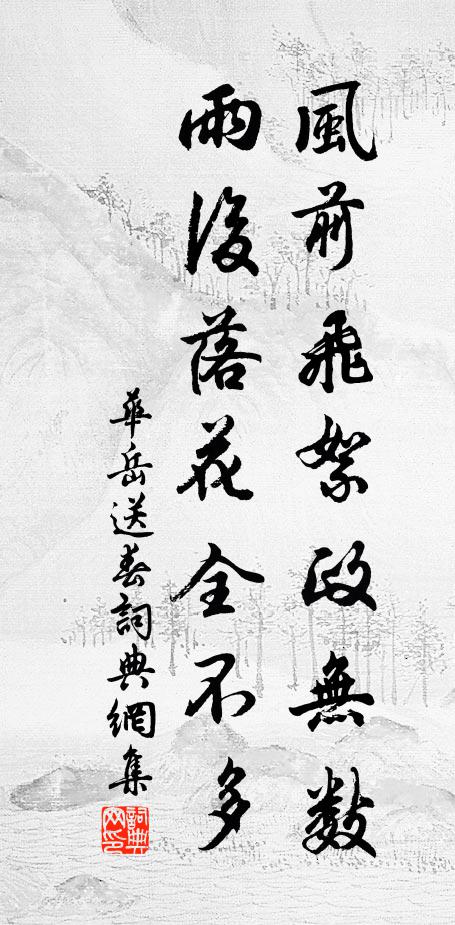 風前飛絮政無數
雨後落花全不多
華岳送春詞典網集
詞典網印